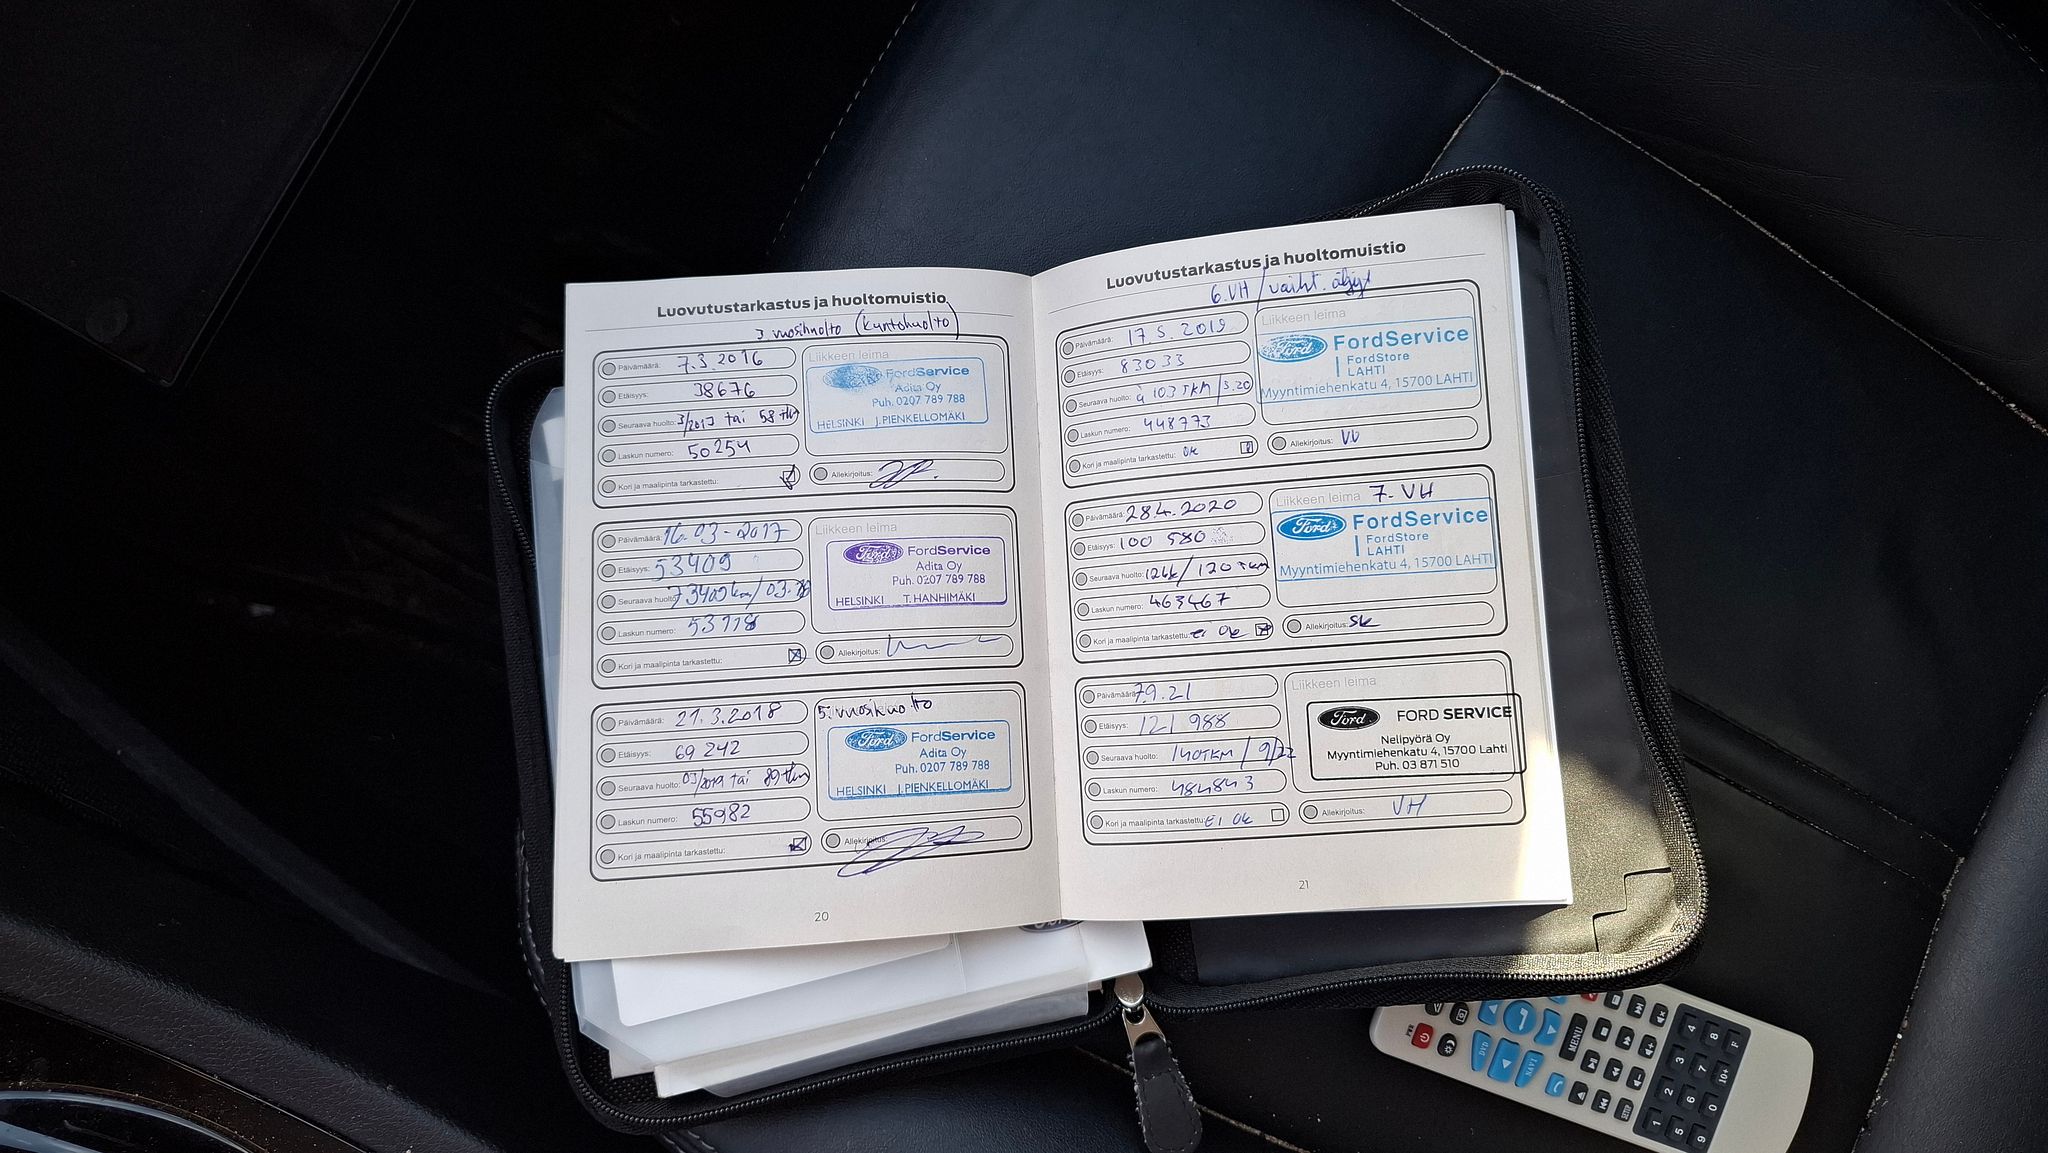 Luovutustarkastus ja huoltomuistio
3 vuosihuolto (kuntohuolto)
Päivämäärä: 7.3.2016
Etäisyys: 38676
Seuraava huolto: 3/2017 tai 58 tkm
Laskun numero: 50254
Kori ja maalipinta tarkastettu:
Liikkeen leima
Ford FordService
Adita Oy
Puh. 0207 789 788
HELSINKI J.PIENKELLOMÄKI
Allekirjoitus:
Päivämäärä: 16-03-2017
Etäisyys: 53409
Seuraava huolto: 73409km/03.18
Laskun numero: 53718
Kori ja maalipinta tarkastettu:
Liikkeen leima
Ford FordService
Adita Oy
Puh. 0207 789 788
HELSINKI T. HANHIMÄKI
Allekirjoitus:
Päivämäärä: 21.3.2018
Etäisyys: 69 242
Seuraava huolto: 03/2019 tai 89 tkm
Laskun numero: 55982
Kori ja maalipinta tarkastettu:
5. vuosihuolto
Ford FordService
Adita Oy
Puh. 0207 789 788
HELSINKI J.PIENKELLOMÄKI
Allekirjoitus:
20
Luovutustarkastus ja huoltomuistio
6.VH / vaiht. öljyt
Päivämäärä: 17.5.2019
Etäisyys: 83033
Seuraava huolto: 103 TKM/5.20
Laskun numero: 448773
Kori ja maalipinta tarkastettu: ok
Liikkeen leima
Ford FordService
FordStore
LAHTI
Myyntimiehenkatu 4, 15700 LAHTI
Allekirjoitus:
Päivämäärä: 28.4.2020
Etäisyys: 100 580
Seuraava huolto: 12kk/120 TKM
Laskun numero: 463467
Kori ja maalipinta tarkastettu: ei ok
Liikkeen leima 7. VH
Ford FordService
FordStore
LAHTI
Myyntimiehenkatu 4, 15700 LAHTI
Allekirjoitus: SK
Päivämäärä: 7.9.21
Etäisyys: 121 988
Seuraava huolto: 140TKM / 9/22
Laskun numero: 484843
Kori ja maalipinta tarkastettu: EI OK
Liikkeen leima
Ford FORD SERVICE
Nelipyörä Oy
Myyntimiehenkatu 4, 15700 Lahti
Puh. 03 871 510
Allekirjoitus: VH
21
PWR
DVD
NAVI
MENU
SETUP
1 2 3 4
5 6 7 8
9 0 10+ F